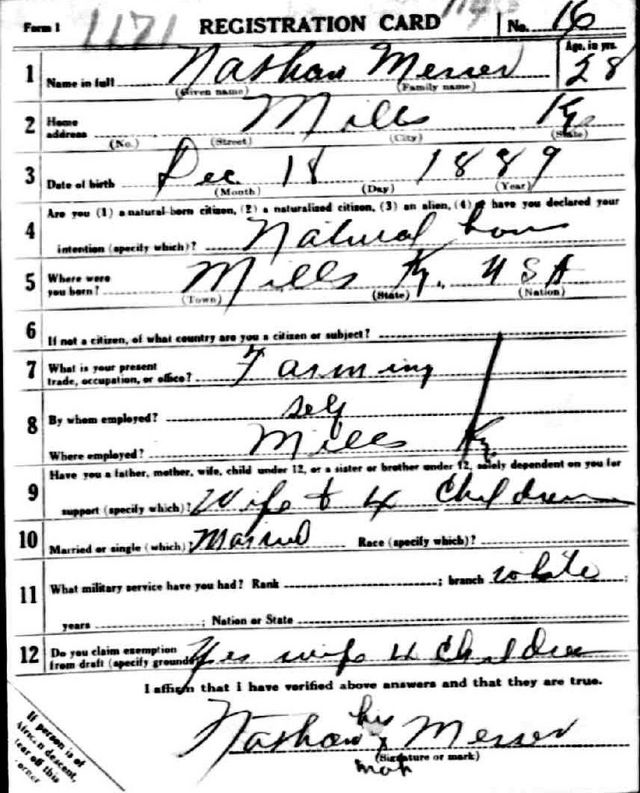 Form 1 1171 REGISTRATION CARD No. 16
1 Name in full Nathan Messer Age, in yrs. 28
(Given name) (Family name)
2 Home address Mills Ky
(No.) (Street) (City) (State)
3 Date of birth Dec 18 1889
(Month) (Day) (Year)
Are you (1) a natural-born citizen, (2) a naturalized citizen, (3) an alien, (4) or have you declared your
4 intention (specify which)? Natural born
5 Where were you born? Mills Ky. U S A
(Town) (State) (Nation)
6 If not a citizen, of what country are you a citizen or subject?
7 What is your present trade, occupation, or office? Farming
8 By whom employed? self
Where employed? Mills Ky
Have you a father, mother, wife, child under 12, or a sister or brother under 12, solely dependent on you for
9 support (specify which)? Wife & 4 Children
10 Married or single (which)? Married Race (specify which)?
11 What military service have you had? Rank ; branch white ;
years ; Nation or State
12 Do you claim exemption from draft (specify grounds)? Yes wife 4 Children
I affirm that I have verified above answers and that they are true.
Nathan his x Messer
mark (Signature or mark)
If person is of
African descent,
tear off this
corner